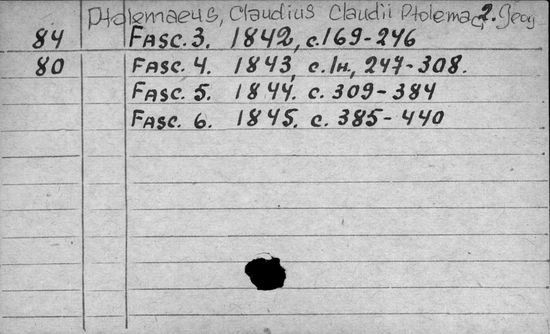 Ptolemaeus, Claudius Claudii Ptolemae 2. Geog
84 Fasc. 3. 1842, c. 169-246
80 Fasc. 4. 1843, c. 1н, 247-308.
Fasc. 5. 1844. c. 309-384
Fasc. 6. 1845. c. 385-440